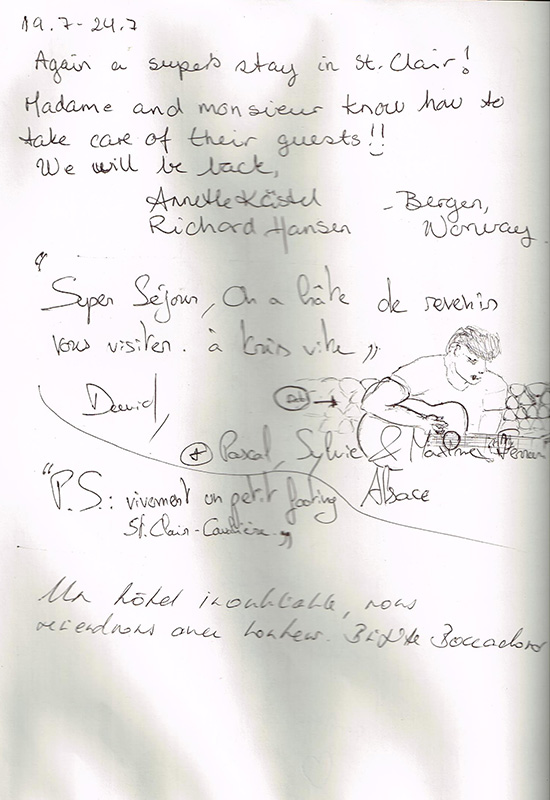 19.7 - 24.7
Again a superb stay in St. Clair!
Madame and monsieur know how to
take care of their guests!!
We will be back,
Annette Kästel - Bergen,
Richard Hansen Norway
" Super Séjour, On a hâte de revenir
vous visiter. à très vite "
David,
+ Pascal, Sylvie & Maxime
"P.S.: vivement un petit footing Alsace
St. Clair-Cavalière."
Un hôtel inoubliable, nous
reviendrons avec bonheur. Brigitte Boccadoro